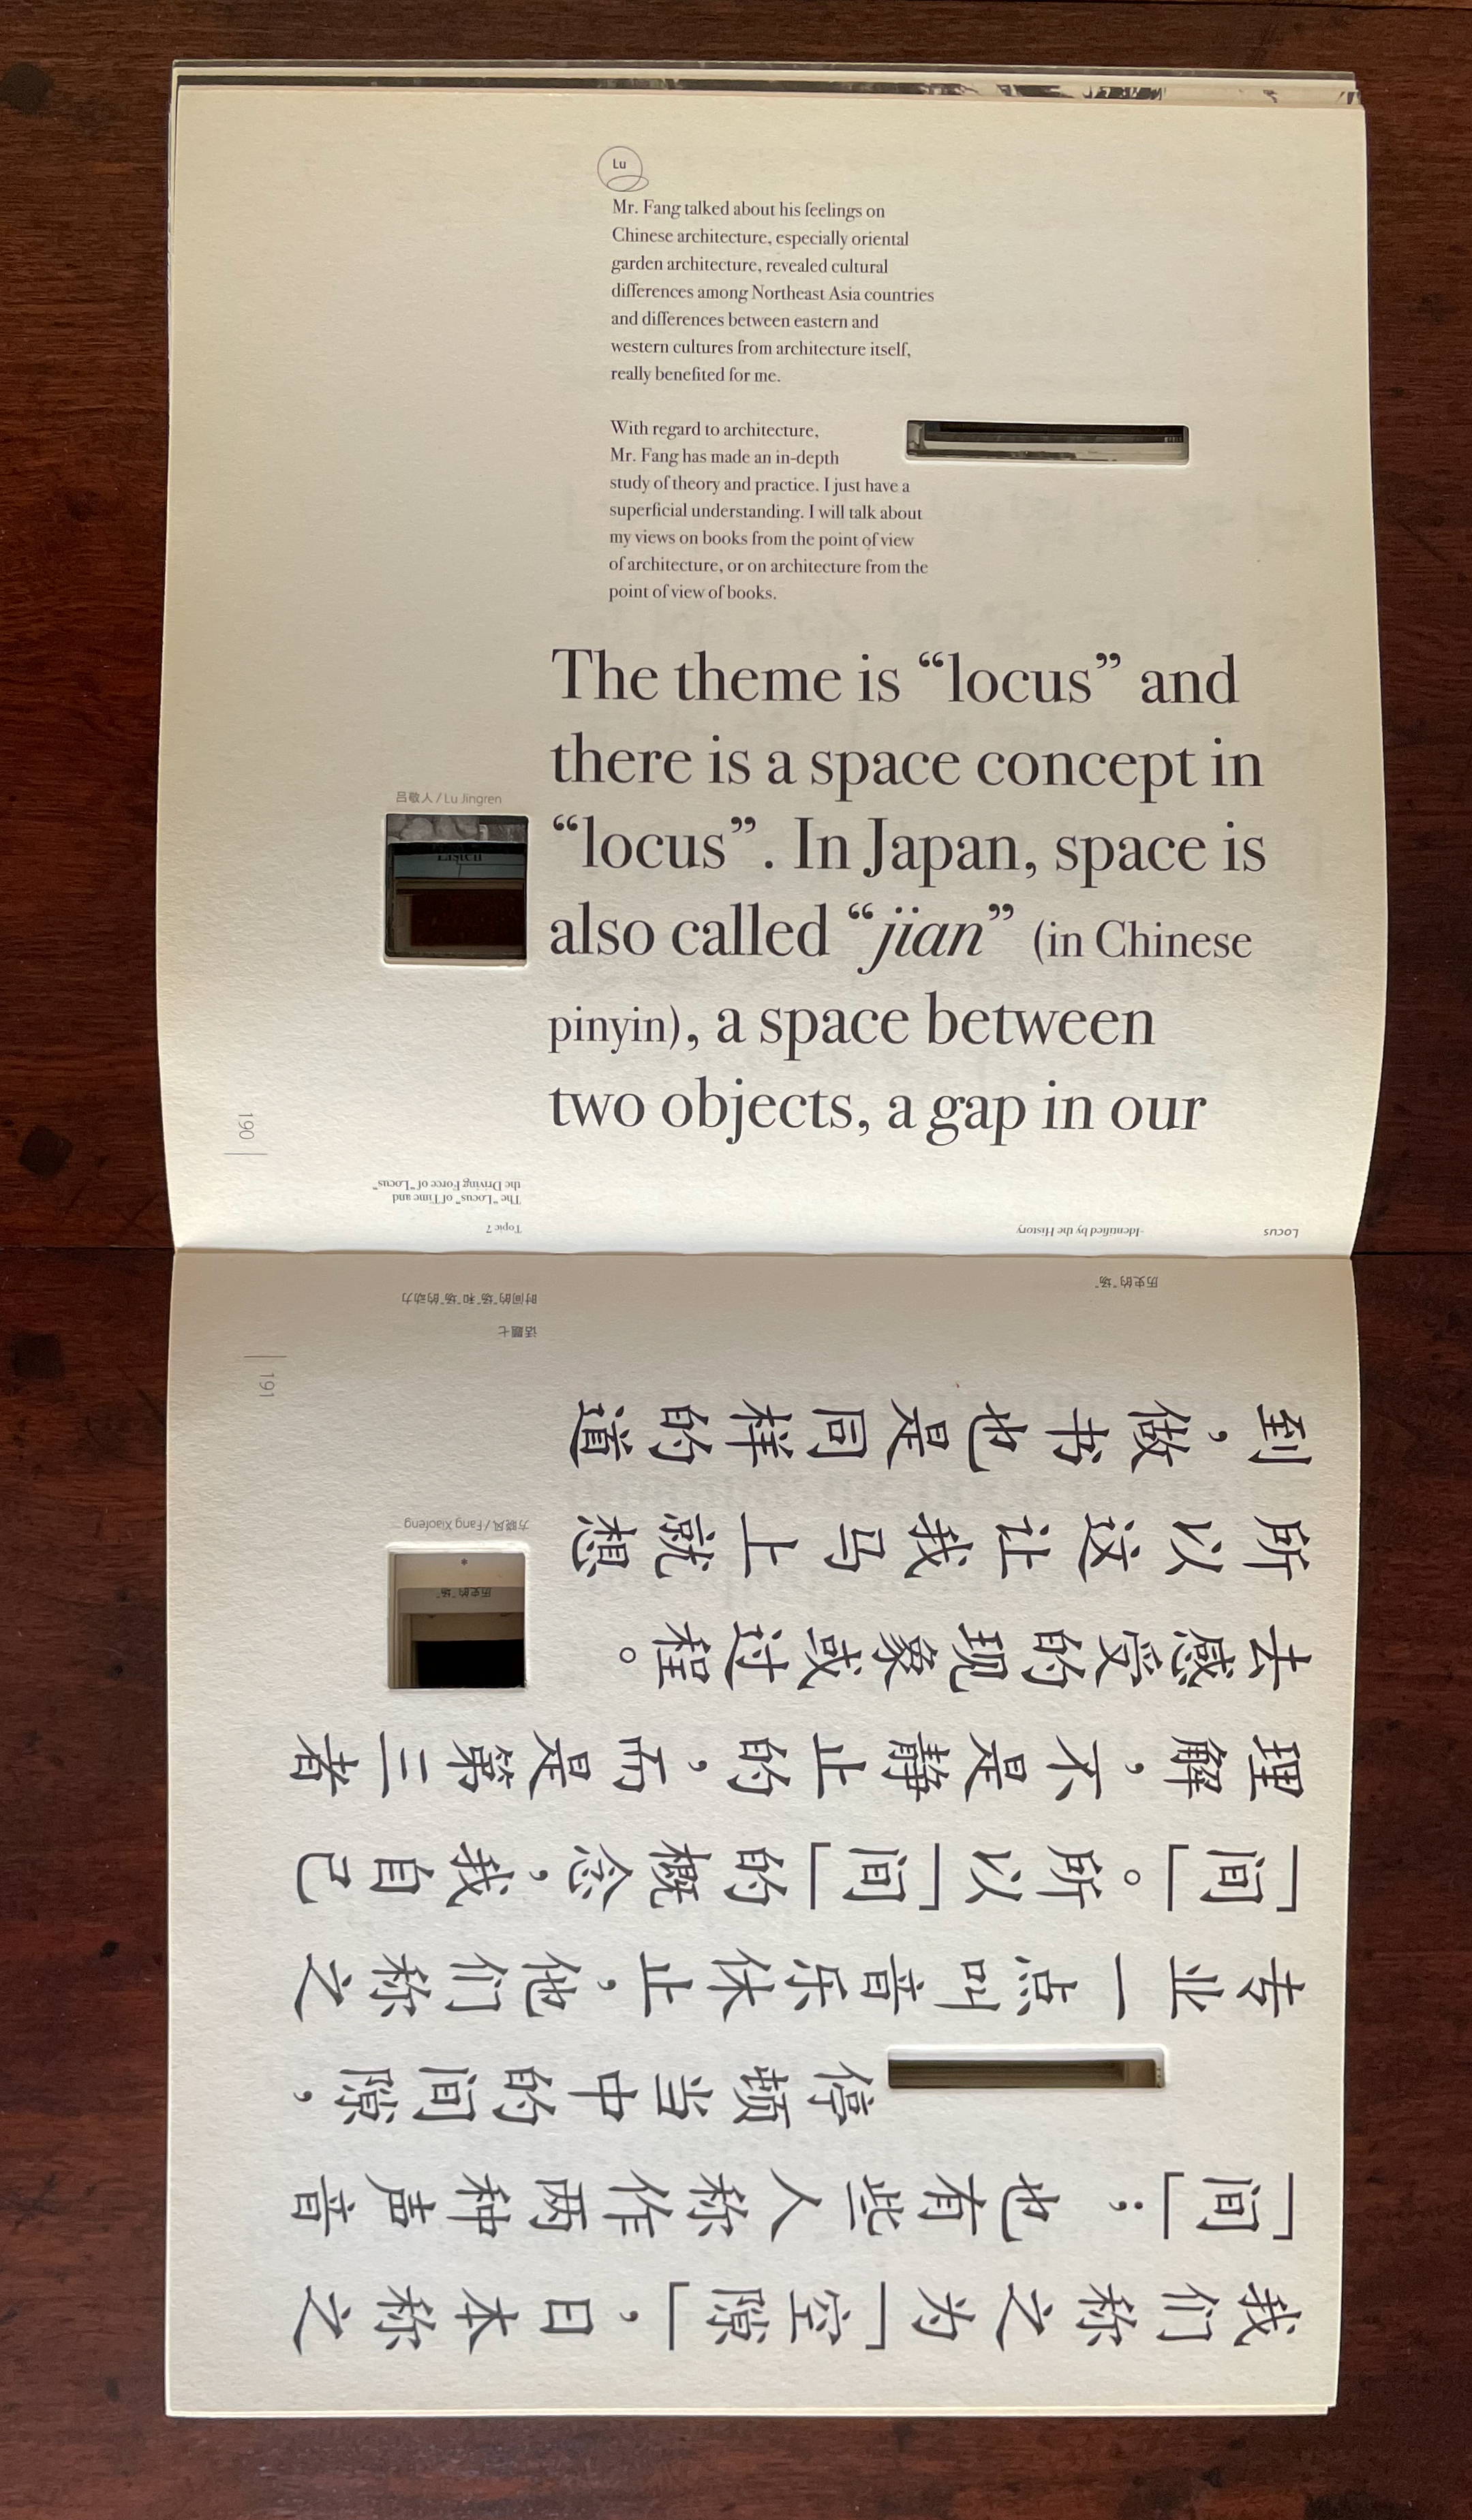 Lu
Mr. Fang talked about his feelings on
Chinese architecture, especially oriental
garden architecture, revealed cultural
differences among Northeast Asia countries
and differences between eastern and
western cultures from architecture itself,
really benefited for me.
With regard to architecture,
Mr. Fang has made an in-depth
study of theory and practice. I just have a
superficial understanding. I will talk about
my views on books from the point of view
of architecture, or on architecture from the
point of view of books.
The theme is “locus” and
there is a space concept in
“locus”. In Japan, space is
also called “jian” (in Chinese
pinyin), a space between
two objects, a gap in our
吕敬人 / Lu Jingren
Listen
190
LOCUS
-Identified by the History
Topic 7
The "Locus" of Time and
the Driving Force of "Locus"
我们称之为「空隙」,日本称之
「间」; 也有些人称作两种声音
停顿当中的间隙,
专业一点叫音乐休止,他们称之
「间」。所以「间」的概念,我自己
理解,不是静止的,而是第三者
去感受的现象或过程。
所以这让我马上就想
到,做书也是同样的道
历史的"场"
*
方晓风 / Fang Xiaofeng
191
话题七
时间的"场"和"场"的动力
历史的"场"